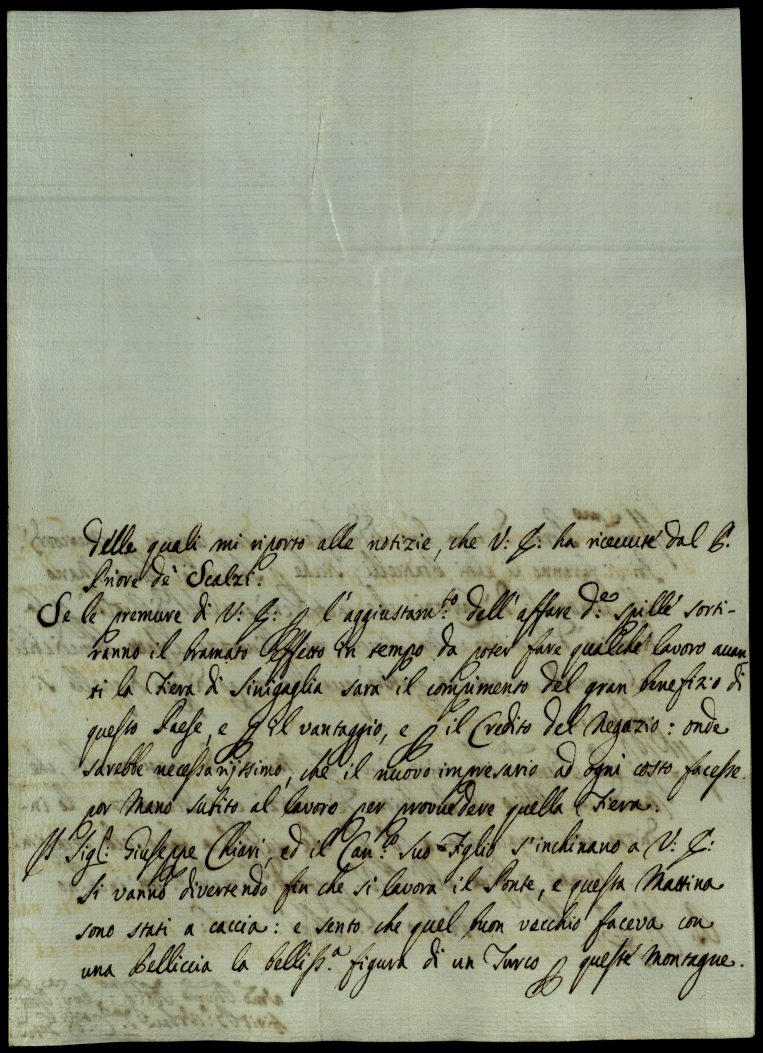 delle quali mi riporto alle notizie, che V: E: ha riceuute dal P.
Priore de' Scalzi.
Se le premure di V: E: p l'aggiustam.to dell'affare d.o spille sorti-
ranno il bramato effetto in tempo da poter fare qualche lavoro auan
ti la Fiera di Sinigaglia sarà il compimento del gran benefizio di
questo Paese, e p il vantaggio, e p il Credito del Negozio: onde
sarebbe necessarijssimo, che il nuovo impresario ad ogni costo facesse
por mano subito al lavoro per prouuedere quella Fiera.
Il Sig.r Giuseppe Chiari, ed il Can.co suo Figlio s'inchinano a V: E:
Si vanno divertendo fin che si lavora il Ponte, e questa Mattina
sono stati a caccia: e sento che quel buon vecchio faceva con
una Pelliccia la belliss.a figura di un Turco p queste Montagne.